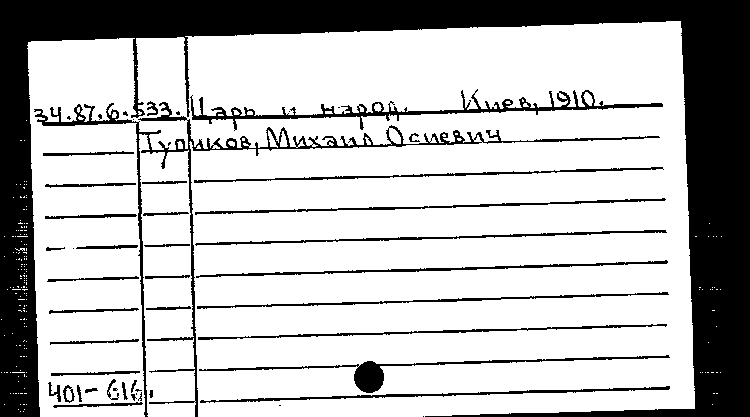 34.87.6.533. Царь и народ. Киев, 1910.
Тупиков, Михаил Осиевич
401-616.